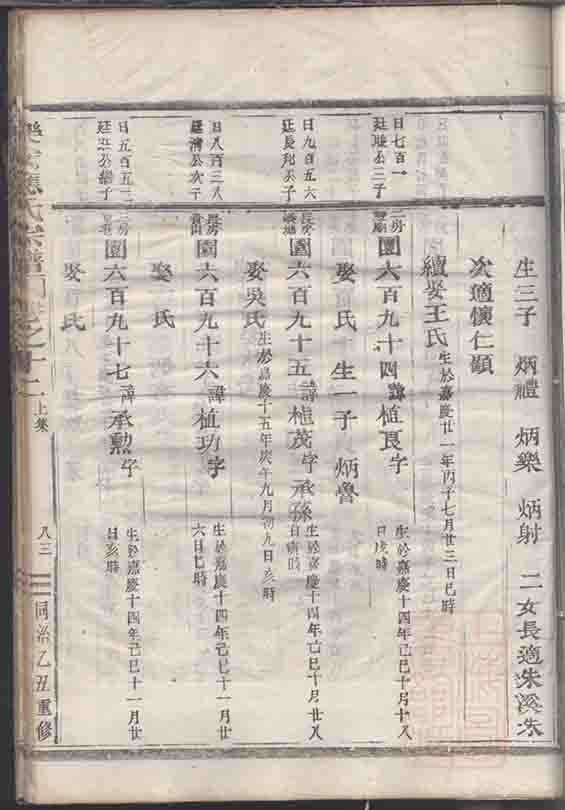 生三子 炳禮 炳樂 炳射 二女長適朱溪朱
次適懷仁顓
續娶王氏 生於嘉慶廿一年丙子七月廿三日巳時
日七百一
廷 公三子
二房
園六百九十四 諱植良 字
生於嘉慶十四年己巳十月十八
日戌時
娶 氏 生一子 炳魯
日九百五六
廷長 公子
長房
園六百九十五 諱植茂 字承孫
生於嘉慶十四年己巳十月廿八
日寅時
娶吳氏 生於嘉慶十五年庚午九月初九日亥時
日八百三八
公次子
長房
園六百九十六 諱植功 字
生於嘉慶十四年己巳十一月廿
六日巳時
娶 氏
日五百五三
廷 公繼子
二房
園六百九十七 諱承勲 字
生於嘉慶十四年己巳十一月廿
日亥時
娶 氏
氏宗譜 卷之十二 上集 八三 同治乙丑重修